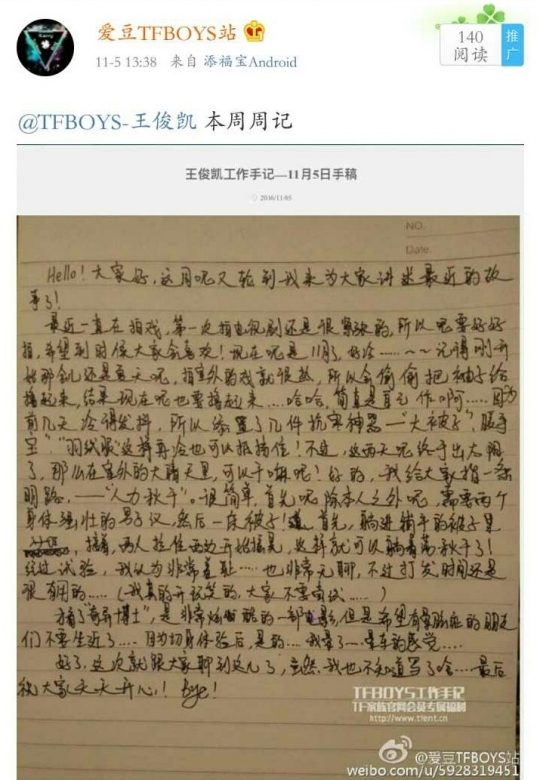 爱豆TFBOYS站
11-5 13:38 来自 添福宝Android
140
阅读
推
广
@TFBOYS-王俊凯 本周周记
王俊凯工作手记—11月5日手稿
2016/11/05
NO.
Date.
Hello！大家好，这周呢又轮到我来为大家讲述最近的故
事了！
最近一直在拍戏，第一次拍电视剧还是很紧张的，所以呢要好好
拍，希望到时候大家会喜欢！现在呢是11月了，好冷……～～记得刚开
始那会儿还是夏天呢，拍室外的戏就很热，所以会偷偷把裤子给
撸起来，结果现在呢也要撸起来……哈哈，简直是自作啊……因为
前几天冷得发抖，所以添置了几件抗寒神器—"大被子"，"暖
宝"，"羽绒服"这样再冷也可以抵挡住！不过，这两天呢终于出太阳
了，那么在室外的大晴天里，可以干嘛呢！好的，我给大家指一条
明路，——"人力秋千"。很简单，首先呢，除本人之外呢，需要两个
身体强壮的男子汉，然后一床被子！首先，躺进铺平的被子里
，接着，两人拉住两边开始摇晃，这样就可以躺着荡秋千了！
经过试验，我认为非常羞耻……也非常无聊，不过打发时间还是
很有用的……（我真的开玩笑的，大家不要尝试……）
看了"奇异博士"，是非常炫酷的一部电影，但是希望有晕眩症的朋友
们不要坐近了……因为切身体验后，是的……我晕了……晕车的感觉……
好了，这次就跟大家聊到这儿了，当然，我也不知道写了啥……最后
祝大家天天开心！Bye！
TFBOYS工作手记
TF家族官网会员专属福利
http://www.tfent.cn
@爱豆TFBOYS站
weibo.com/u/5928319451